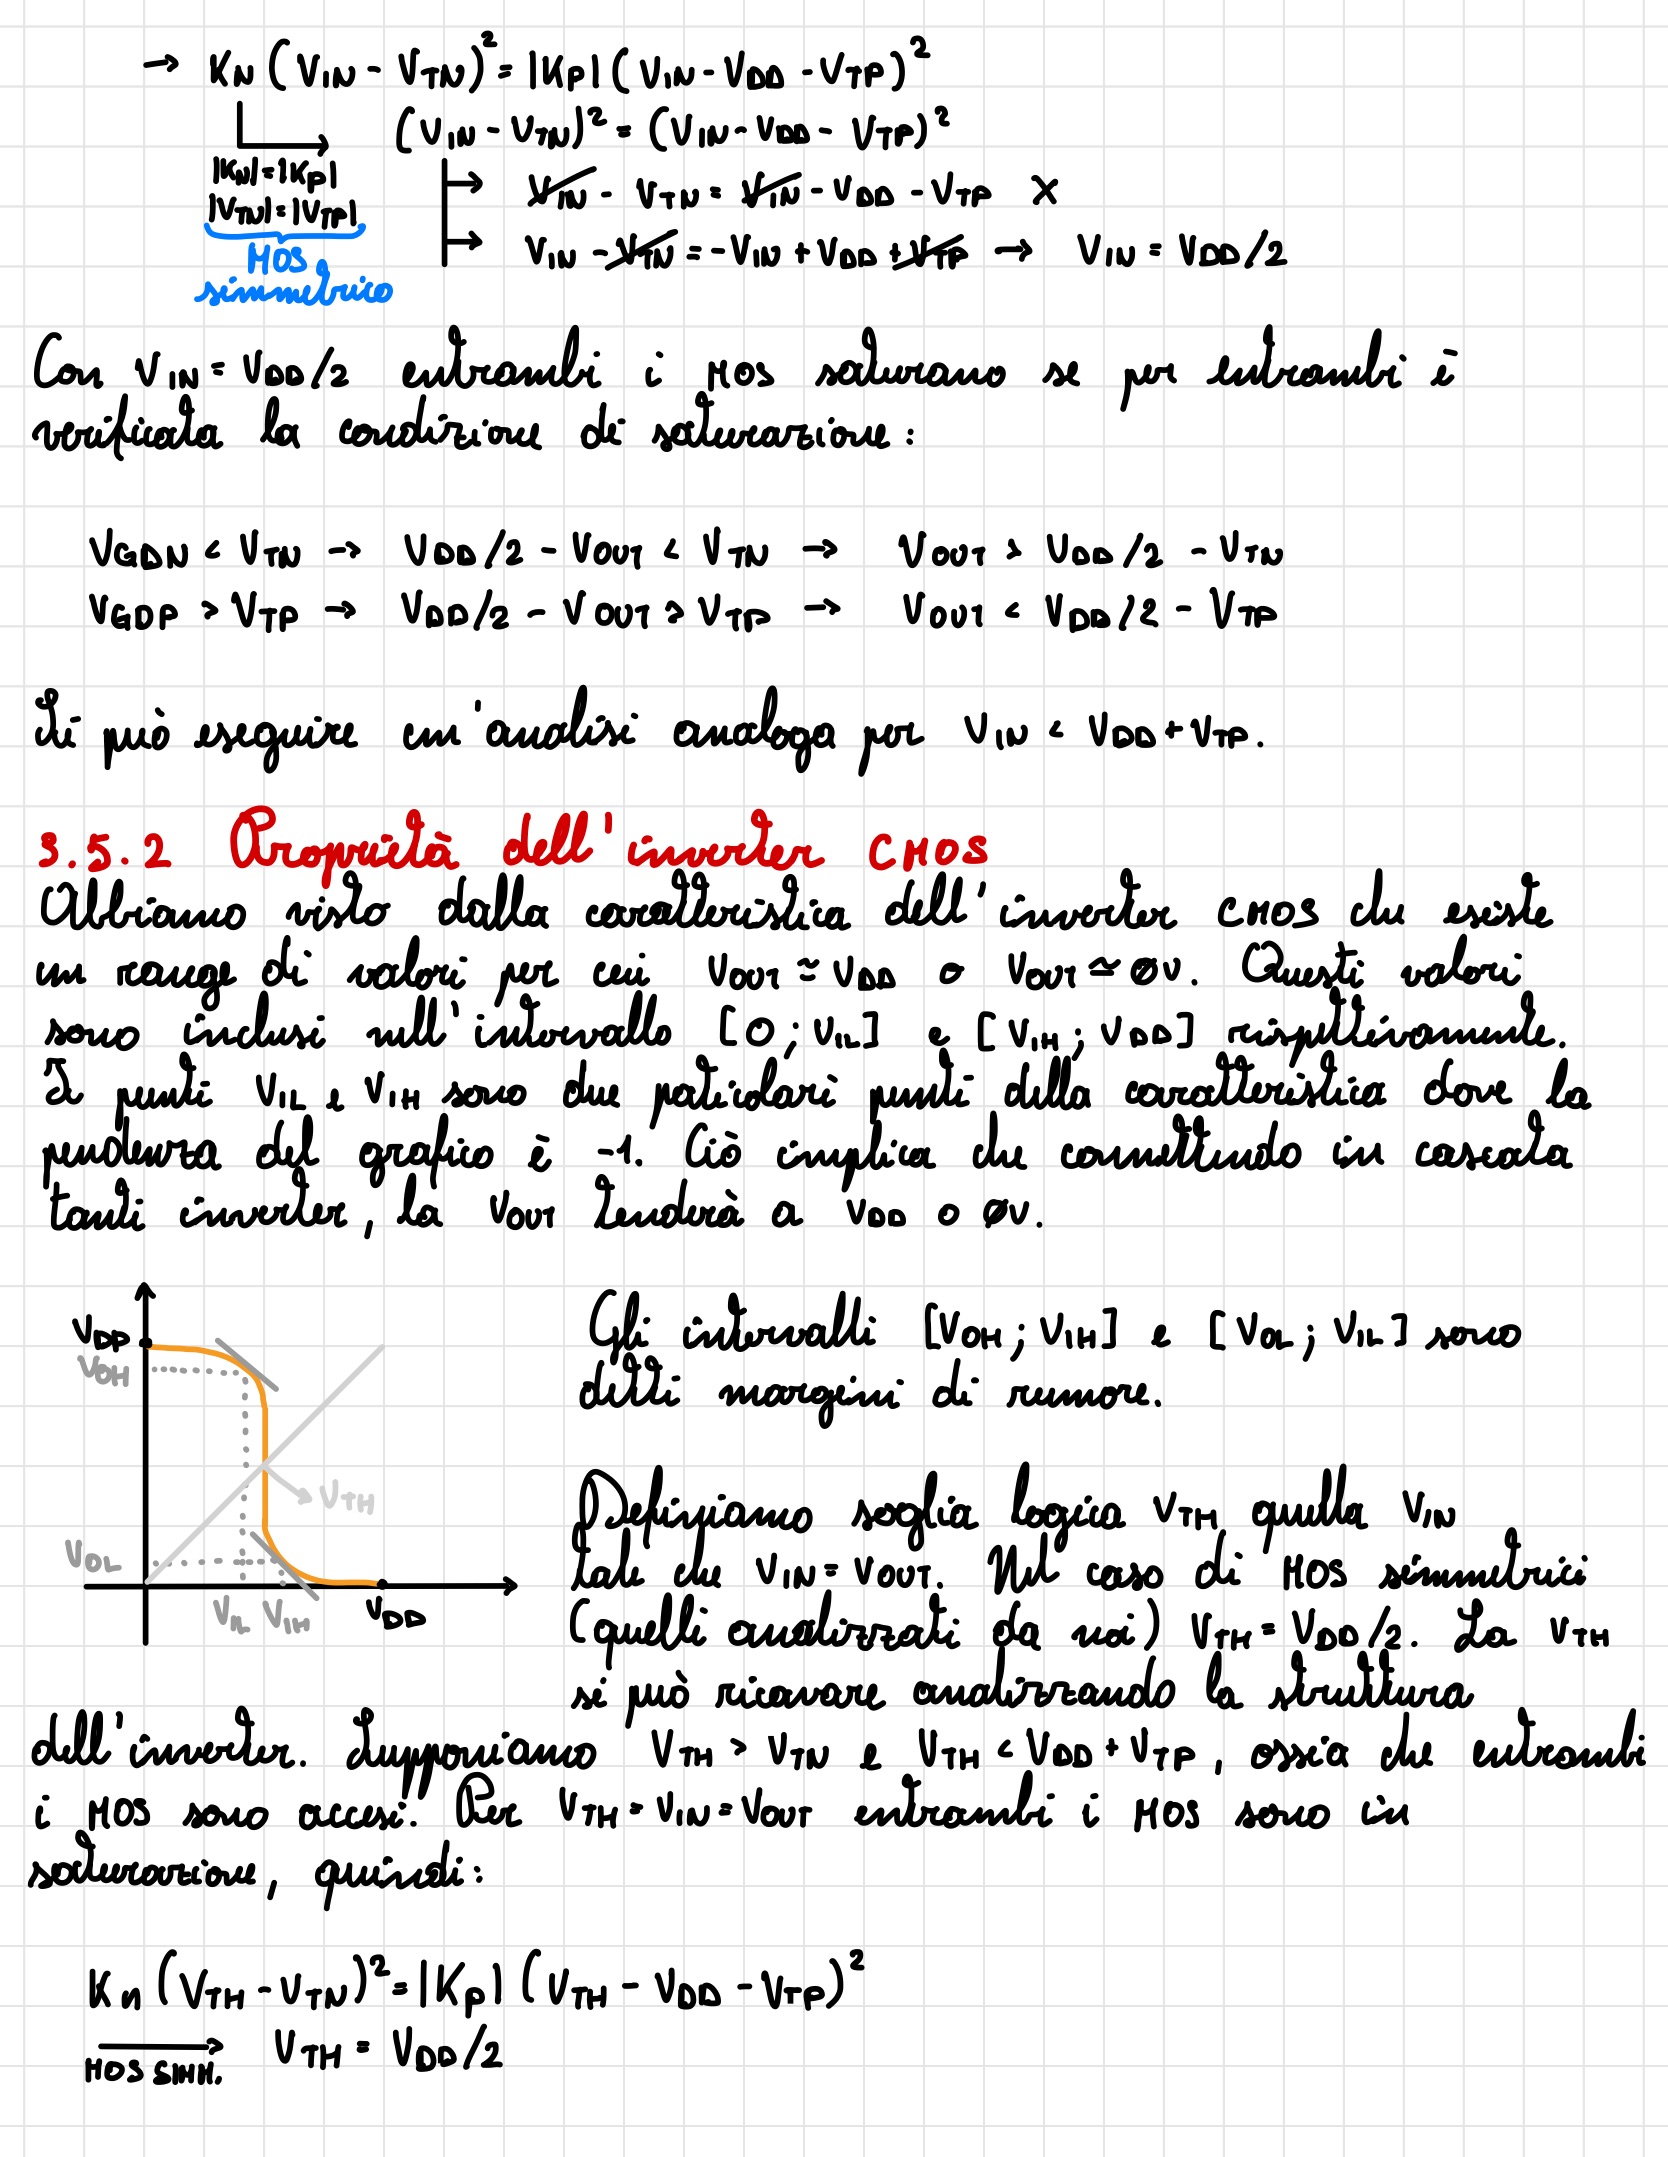 → KN (VIN - VTN)² = |KP| (VIN - VDD - VTP)²
(VIN - VTN)² = (VIN - VDD - VTP)²
|KN| = |KP|
|VTN| = |VTP|
MOS
simmetrico
→ VIN - VTN = VIN - VDD - VTP X
→ VIN - VTN = - VIN + VDD + VTP → VIN = VDD/2
Con VIN = VDD/2 entrambi i MOS saturano se per entrambi è
verificata la condizione di saturazione:
VGDN < VTN → VDD/2 - VOUT < VTN → VOUT > VDD/2 - VTN
VGDP > VTP → VDD/2 - VOUT > VTP → VOUT < VDD/2 - VTP
Si può eseguire un'analisi analoga per VIN < VDD + VTP.
3.5.2 Proprietà dell'inverter CMOS
Abbiamo visto dalla caratteristica dell'inverter CMOS che esiste
un range di valori per cui VOUT ≃ VDD o VOUT ≃ ØV. Questi valori
sono inclusi nell'intervallo [0; VIL] e [VIH; VDD] rispettivamente.
I punti VIL e VIH sono due paticolari punti della caratteristica dove la
pendenza del grafico è -1. Ciò implica che connettendo in cascata
tanti inverter, la VOUT tenderà a VDD o ØV.
VDD
VOH
VTH
VOL
VIL VIH VDD
Gli intervalli [VOH; VIH] e [VOL; VIL] sono
detti margini di rumore.
Definiamo soglia logica VTH quella VIN
tale che VIN = VOUT. Nel caso di MOS simmetrici
(quelli analizzati da noi) VTH = VDD/2. La VTH
si può ricavare analizzando la struttura
dell'inverter. Supponiamo VTH > VTN e VTH < VDD + VTP, ossia che entrambi
i MOS sono accesi. Per VTH = VIN = VOUT entrambi i MOS sono in
saturazione, quindi:
Kn (VTH - VTN)² = |Kp| (VTH - VDD - VTP)²
MOS SIMM. → VTH = VDD/2